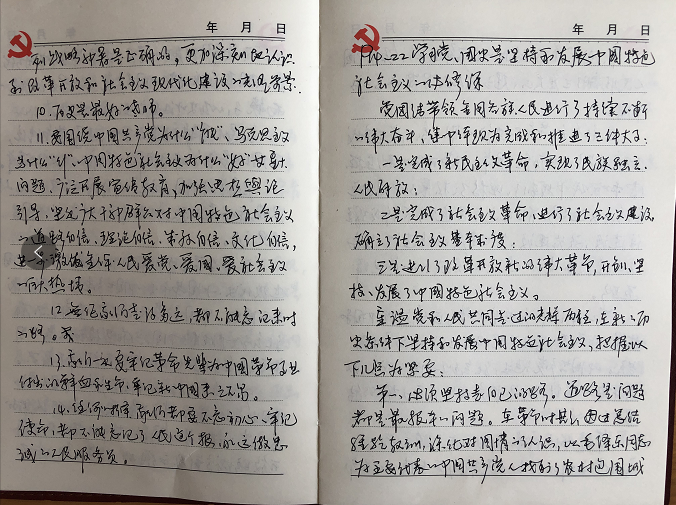 年 月 日
和战略部署是正确的，更加深刻地认识
到改革开放和社会主义现代化建设的光明前景。
10.历史是最好的老师。
11.要围绕中国共产党为什么“能”、马克思主义
为什么“行”、中国特色社会主义为什么“好”等重大
问题，广泛开展宣传教育，加强思想舆论
引导，坚定广大干部群众对中国特色社会主义
的道路自信、理论自信、制度自信、文化自信，
进一步激发全体人民爱党、爱国、爱社会主义
的巨大热情。
12.无论我们走得多远，都不能忘记来时
的路。
13.我们一定要牢记革命先辈为中国革命事业
付出的鲜血和生命，牢记新中国来之不易。
14.任何时候我们都要不忘初心、牢记
使命，都不能忘记了人民这个根，永远做忠
诚的人民服务员。
年 月 日
学习党、国史是坚持和发展中国特色
社会主义的必修课
党团结带领全国各族人民进行了持续不断
的伟大奋斗，集中体现为完成和推进了三件大事：
一是完成了新民主主义革命，实现了民族独立、
人民解放；
二是完成了社会主义革命，进行了社会主义建设，
确立了社会主义基本制度；
三是进行了改革开放新的伟大革命，开创、坚
持、发展了中国特色社会主义。
党和人民共同走过的光辉历程，在新的历
史条件下坚持和发展中国特色社会主义，把握以
下几点为要：
第一、必须坚持走自己的路。道路是问题
都是最根本的问题。在革命时期，因过总结
经验教训，深化对国情的认识，以毛泽东同志
为主要代表的中国共产党人找到了农村包围城